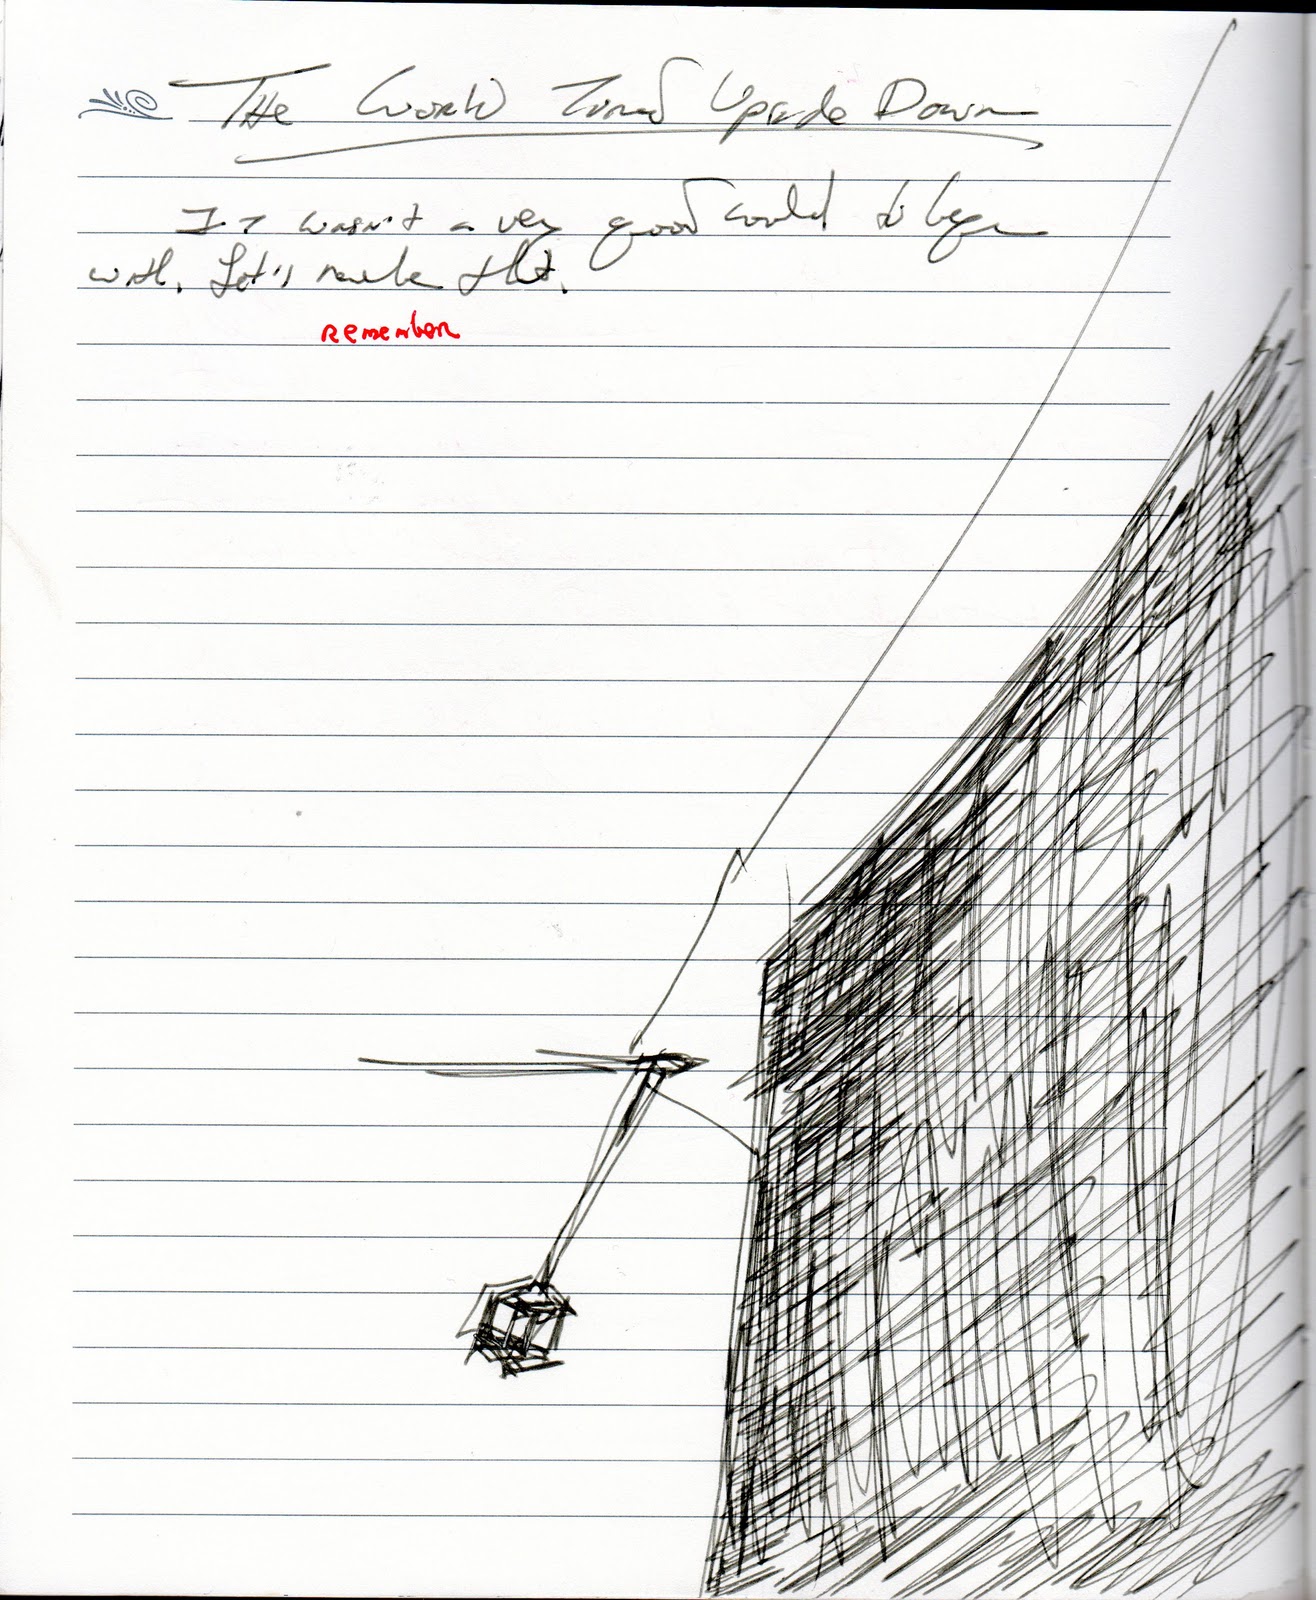 The World Turned Upside Down
It wasn't a very good world to begin
with. Let's make that.
remember